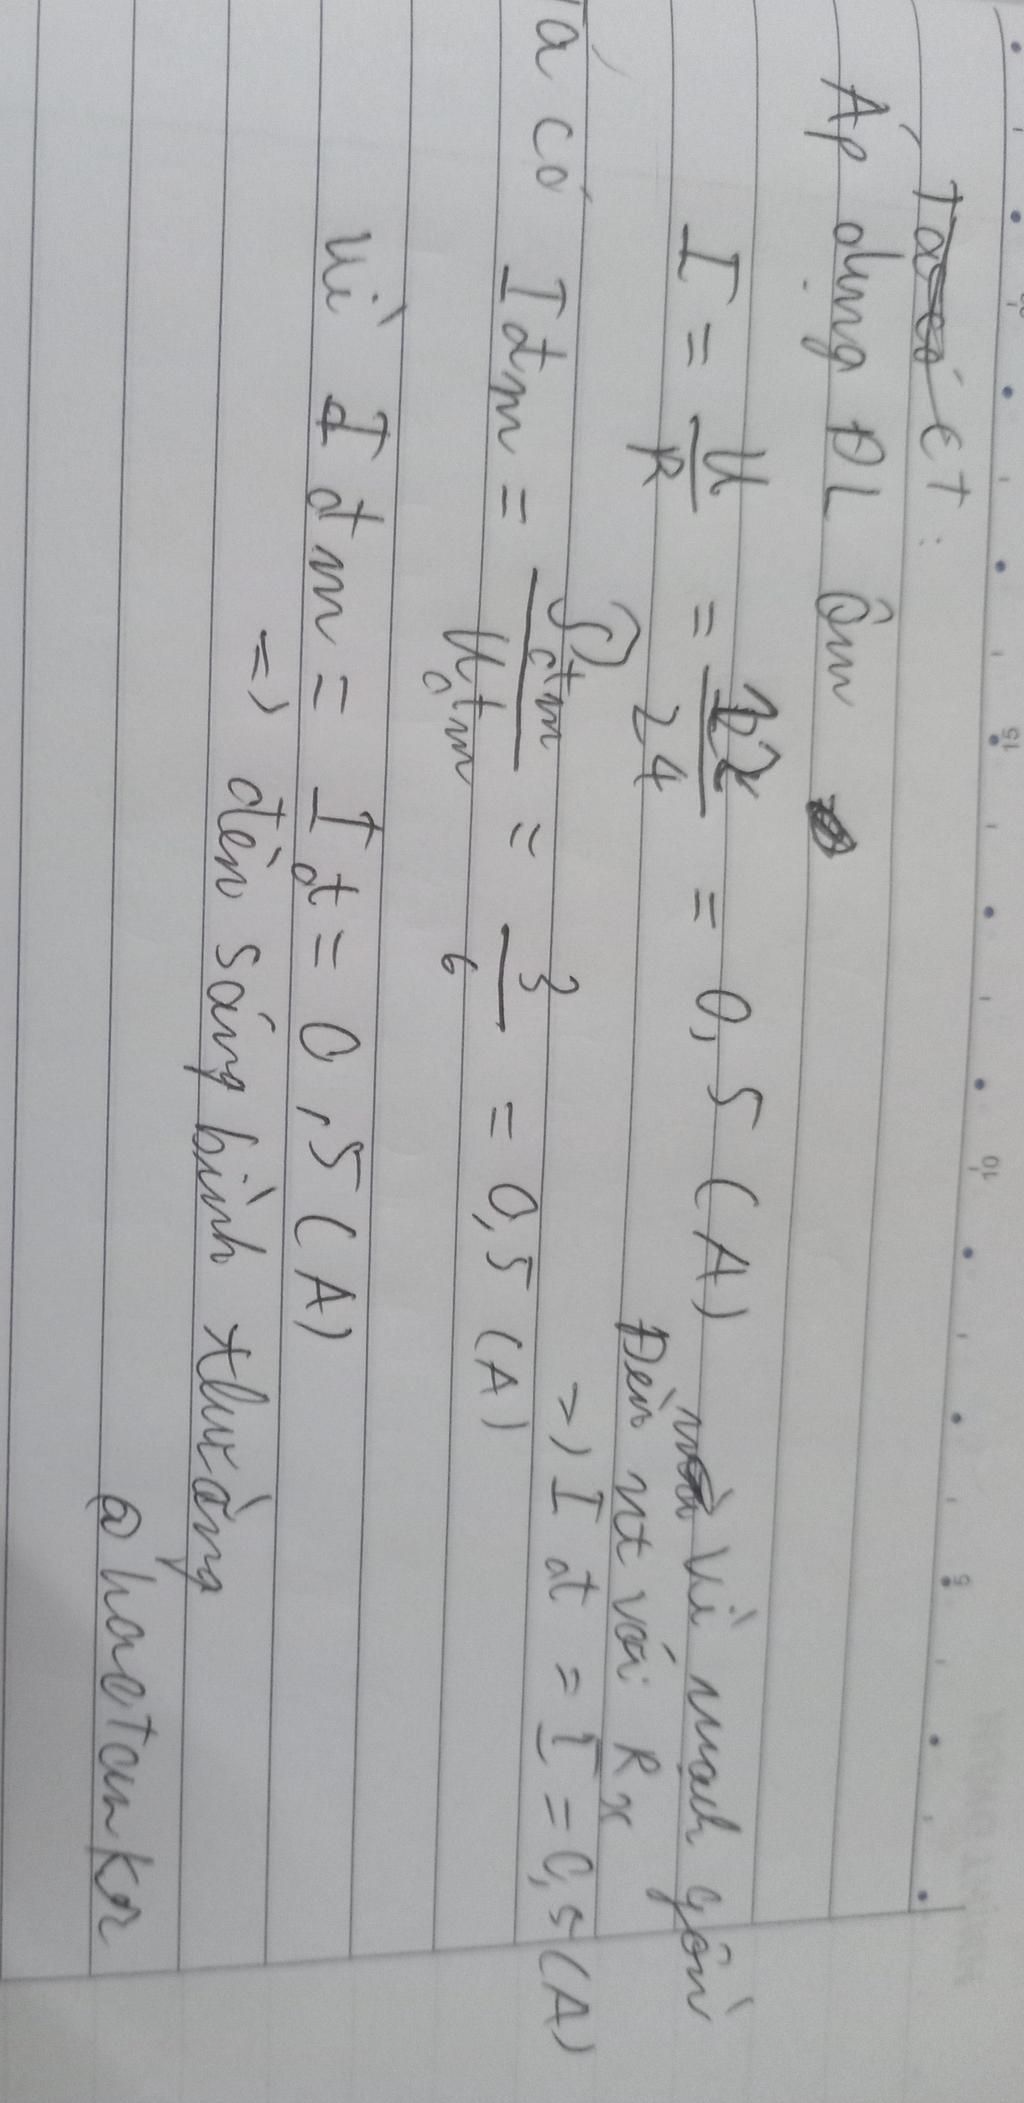 CT:
Áp dụng ĐL Ôm
I = U/R = 12/24 = 0,5 (A)
Vì mạch gồm
Đèn nt với Rx
=> I đ = I = 0,5 (A)
Ta có I đm = P đm/U đm = 3/6 = 0,5 (A)
Vì I đm = I đ = 0,5 (A)
=> đèn sáng bình thường
@hactankr
15
10
5